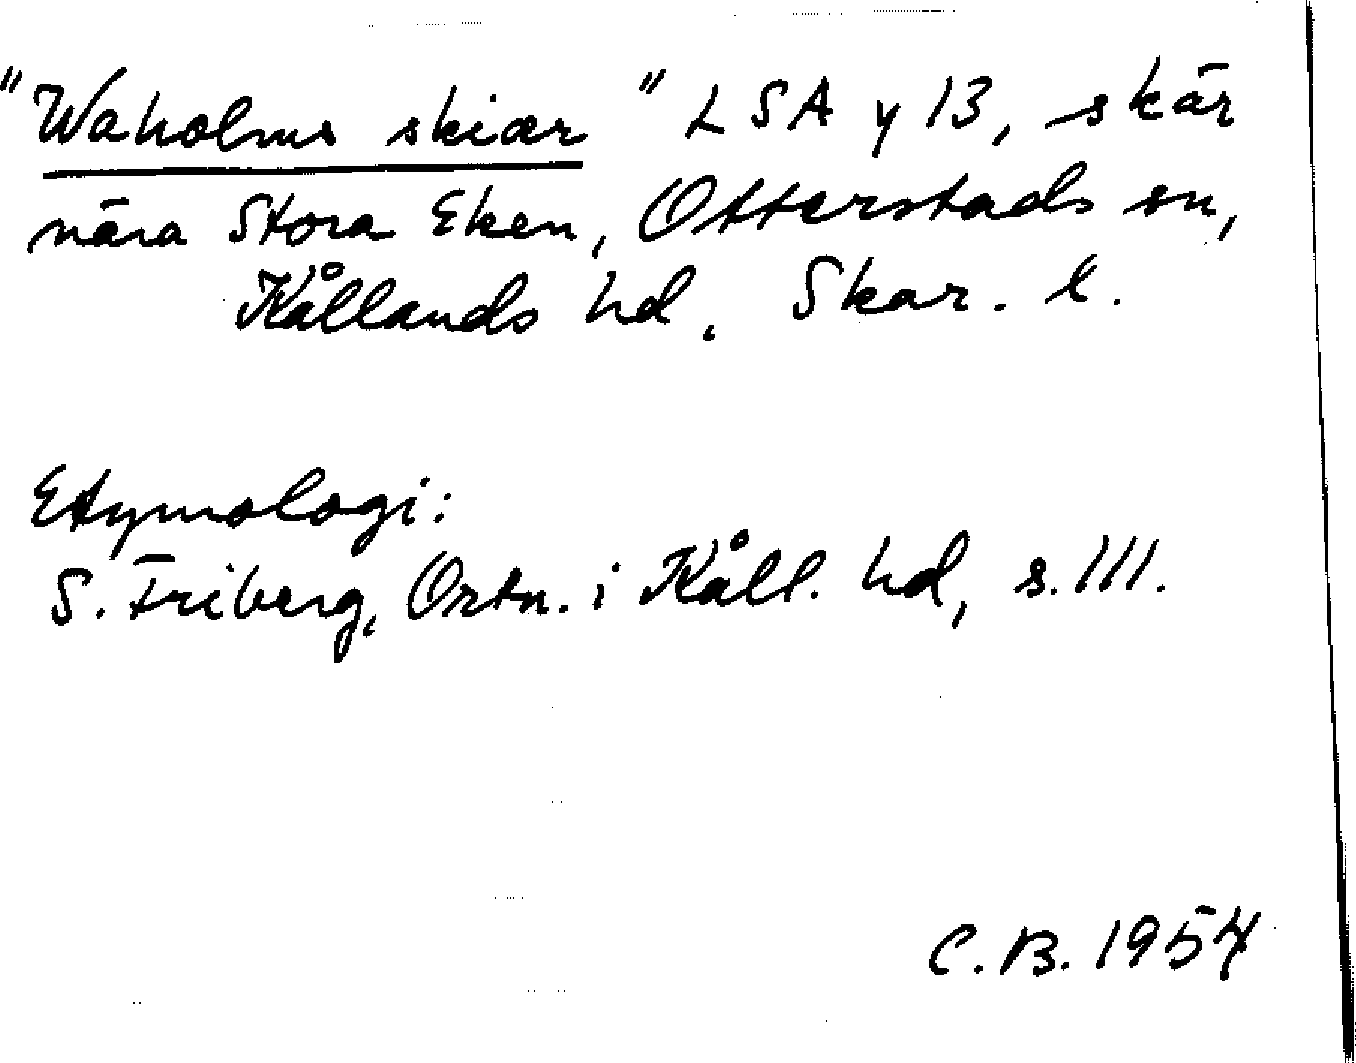 "Waholms skiær" LSA y 13, skär
nära Stora Eken, Otterstads sn,
Kållands hd, Skar. l.
Etymologi:
S. Friberg, Ortn. i Kåll. hd, s. 111.
C.B. 1954